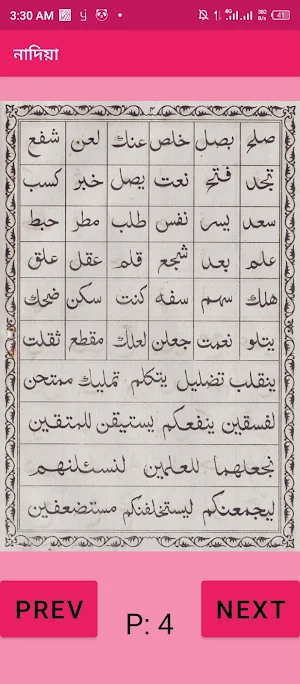 3:30 AM
4G 4G 382 B/s 41
নাদিয়া
صلح بصل خلص عنك لعن شفع
تجد فتح نعت يصل خبر كسب
سعد يسر نفس طلب مطر حبط
علم بعد شجع قلم عقل علق
هلك سهم سفه كنت سكن ضحك
يتلو نعمت جعلن لعلك مقطع ثقلت
ينقلب تضليل يتكلم تمليك ممتحن
لفسقين ينفعكم يستيقن للمتقين
نجعلهما للعلمين لنسئلنهم
ليجمعنكم ليستخلفنكم مستضعفين
PREV P: 4 NEXT